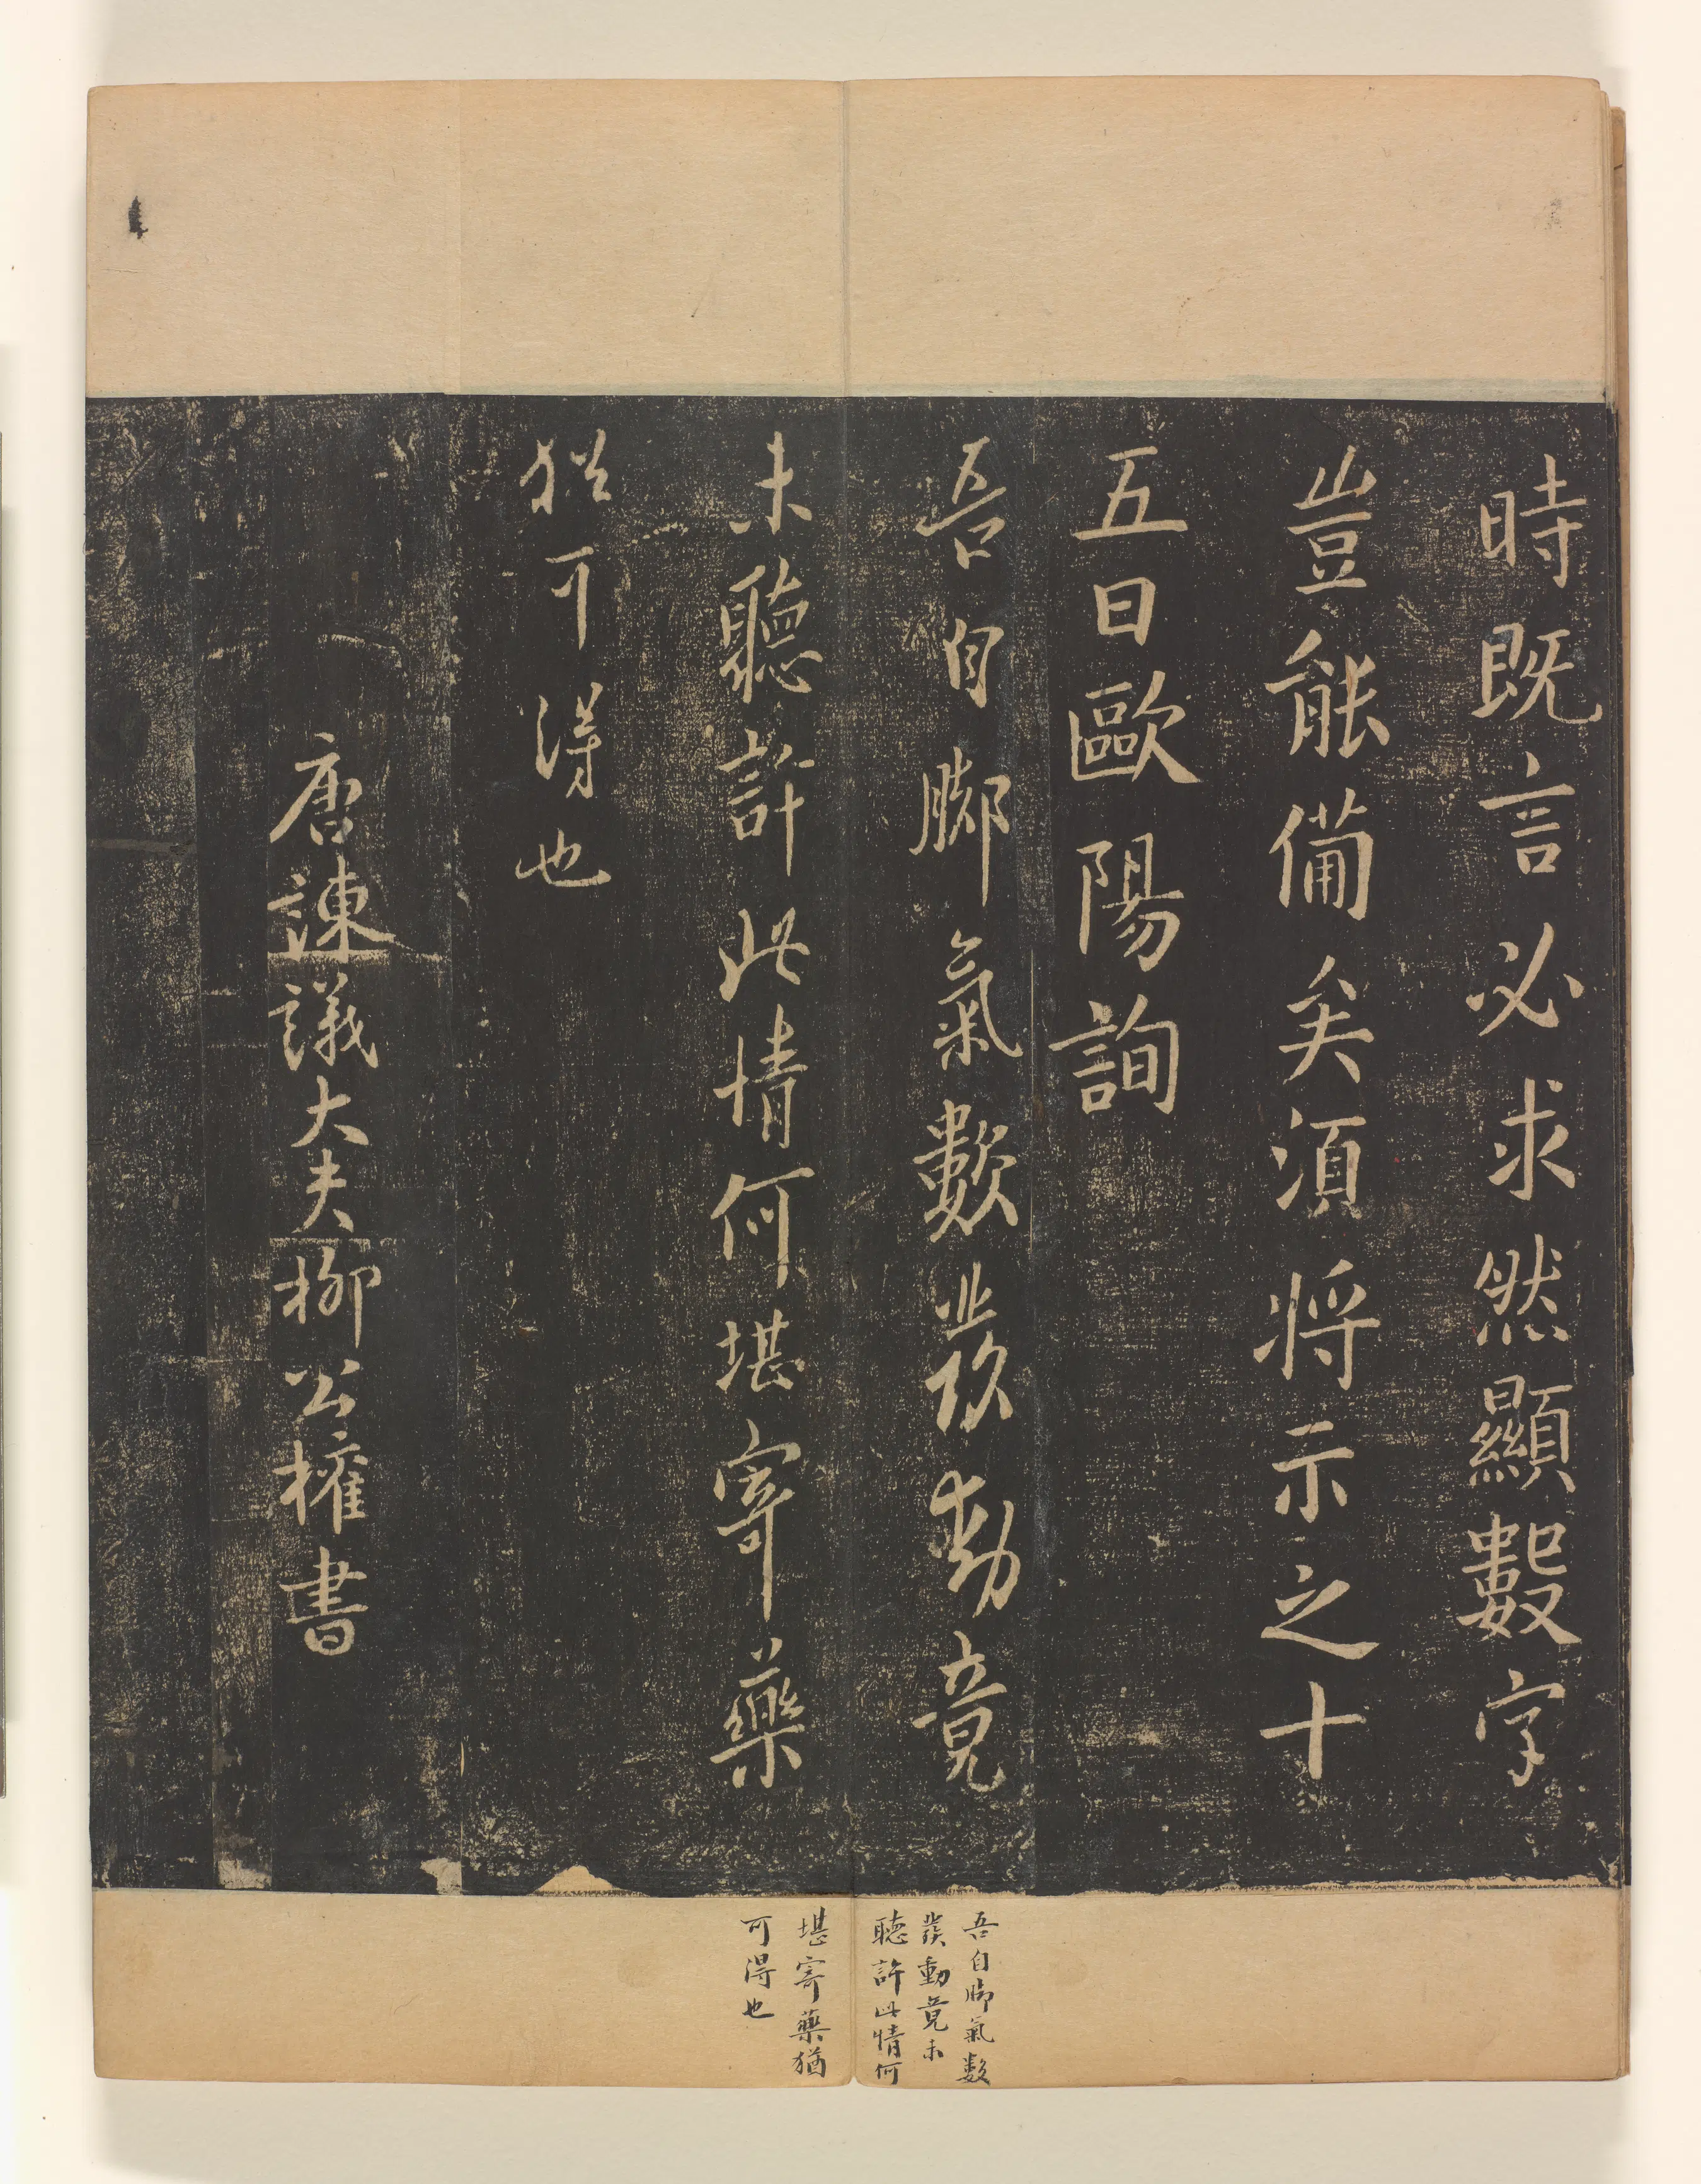 時既言必求然顯數字
豈能備矣須將示之十
五日歐陽詢
吾自腳氣數發動竟
未聽許此情何堪寄藥
猶可得也
唐諫議大夫柳公權書
吾自腳氣數
發動竟未
聽許此情何
堪寄藥猶
可得也